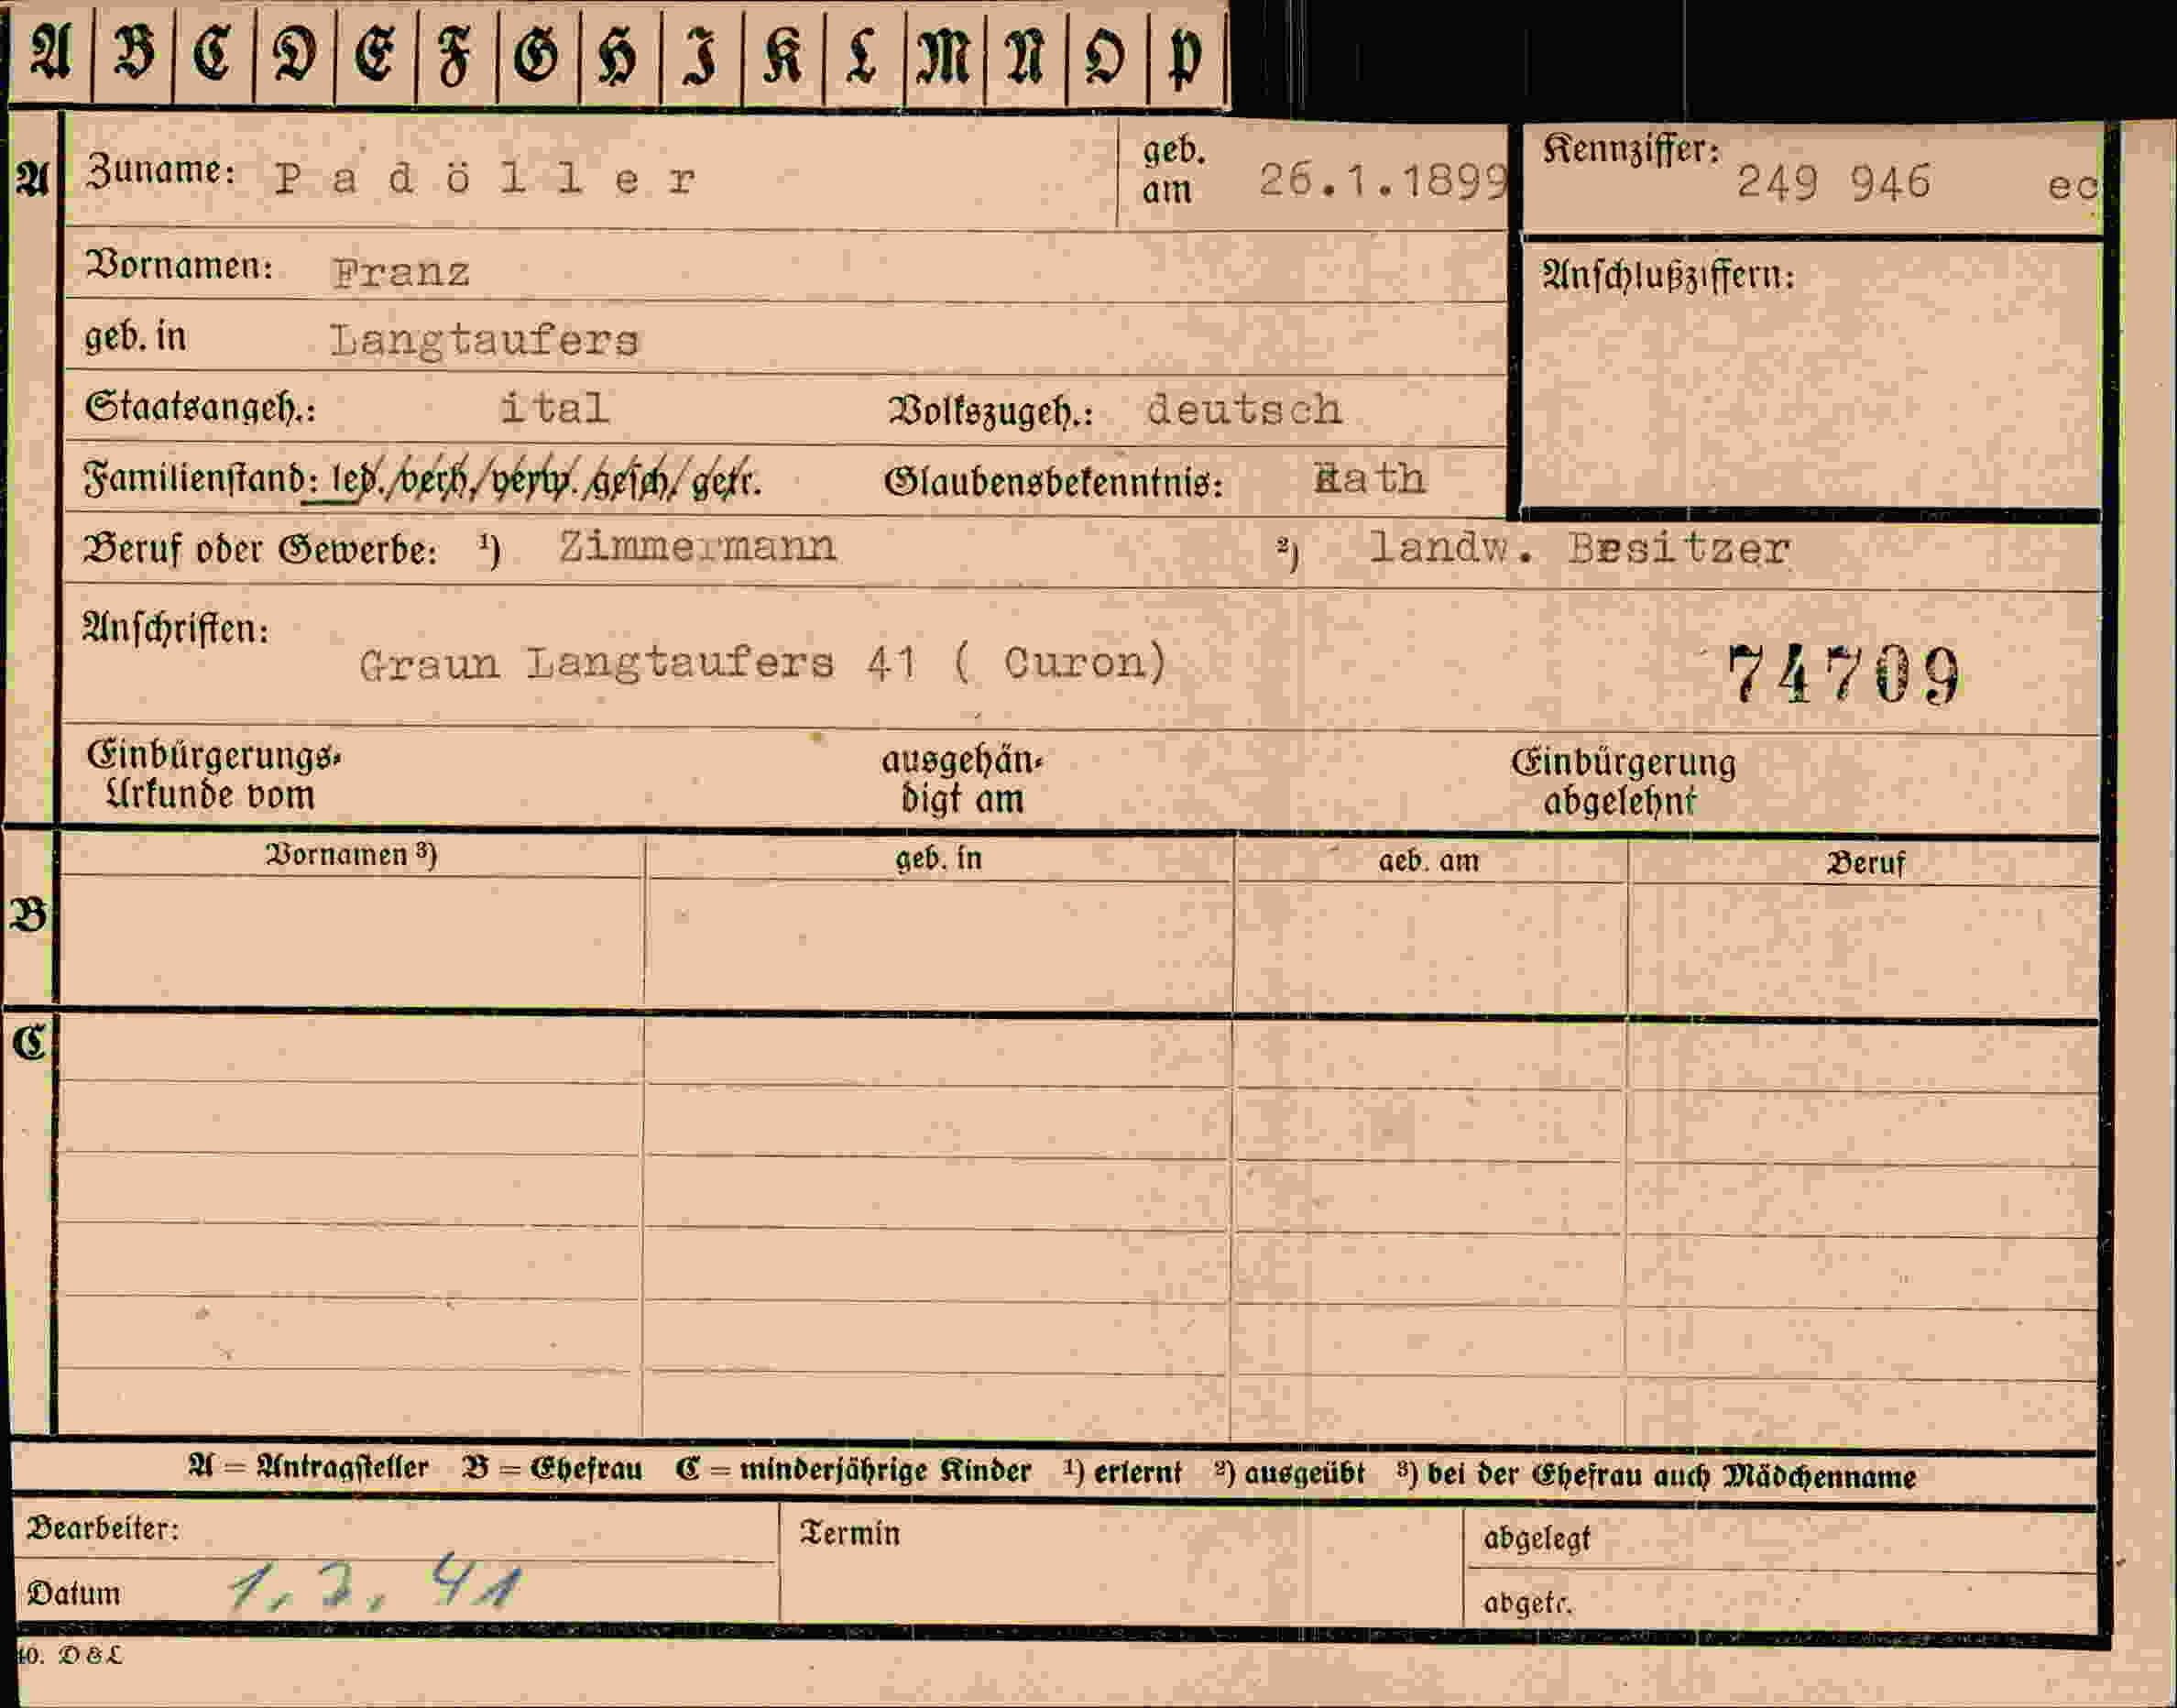 A B C D E F G H I K L M N O P
A Zuname: Padöller geb. am 26.1.1899 Kennziffer: 249 946 ec
Vornamen: Franz Anschlußziffern:
geb. in Langtaufers
Staatsangeh.: ital Volkszugeh.: deutsch
Familienstand: led./verh./verw./gesch./getr. Glaubensbekenntnis: Kath
Beruf oder Gewerbe: ¹) Zimmermann ²) landw. Besitzer
Anschriften:
Graun Langtaufers 41 ( Curon) 74709
Einbürgerungs- ausgehän- Einbürgerung
Urkunde vom digt am abgelehnt
Vornamen ³) geb. in geb. am Beruf
B
C
A = Antragsteller B = Ehefrau C = minderjährige Kinder ¹) erlernt ²) ausgeübt ³) bei der Ehefrau auch Mädchenname
Bearbeiter: Termin abgelegt
Datum 1. 3. 41 abgetr.
40. D & L